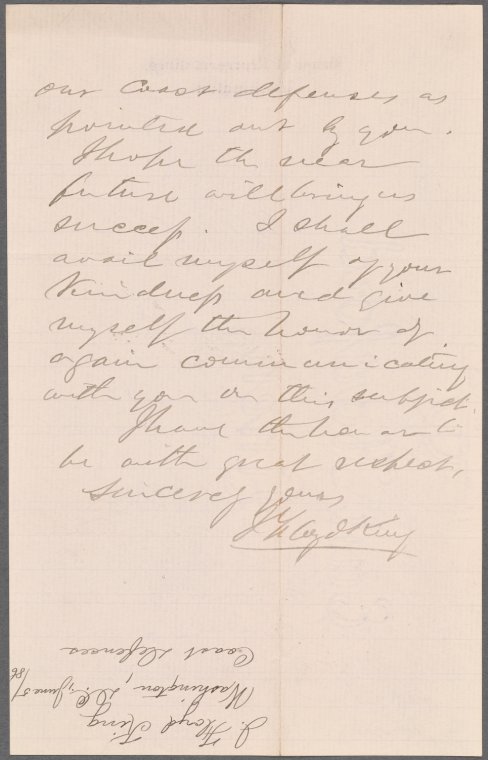 our Coast defenses as
pointed out by you.
I hope the near
future will bring us
success. I shall
avail myself of your
Kindness and give
myself the honor of
again communicating
with you on this subject.
I have the honor to
be with great respect,
Sincerely yours
J Floyd King
J. Floyd King
Washington, D.C., June 5/86
Coast Defences